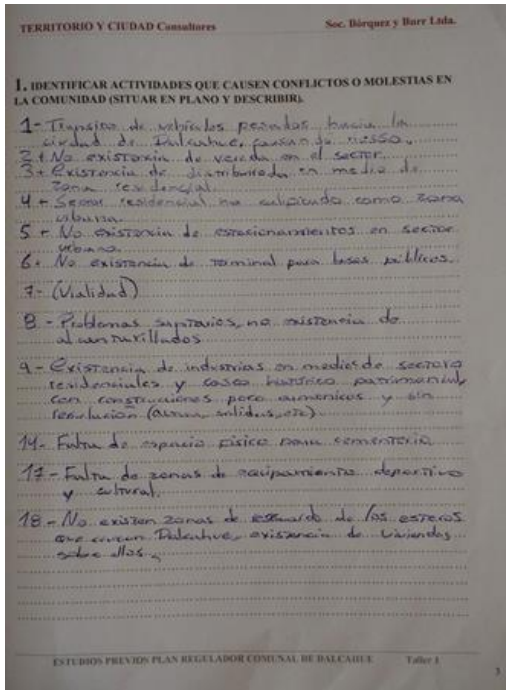 TERRITORIO Y CIUDAD Consultores Soc. Bórquez y Burr Ltda.
1. IDENTIFICAR ACTIVIDADES QUE CAUSEN CONFLICTOS O MOLESTIAS EN
LA COMUNIDAD (SITUAR EN PLANO Y DESCRIBIR).
1- Transito de vehiculos pesados hacia la
ciudad de Dalcahue, causando
2+ No existencia de vereda en el sector
3+ Existencia de distribuidora en medio de
zona residencial
4+ Sector residencial no como zona
urbana
5+ No existencia de estacionamientos en sector
urbano
6+ No existencia de terminal para buses públicos.
7- (Vialidad)
8- Problemas sanitarios, no existencia de
alcantarillados
9- Existencia de industrias en medios de sectores
residenciales y casco histórico patrimonial,
con construcciones poco armonicos y sin
(, salidas, etc)
14- Falta de espacio fisico para cementerio
17- Falta de zonas de equipamiento deportivo
y cultural.
18- No existen zonas de de los esteros
que cruzan Dalcahue, existencia de viviendas
sobre ellos.
ESTUDIOS PREVIOS PLAN REGULADOR COMUNAL DE DALCAHUE Taller 1
3